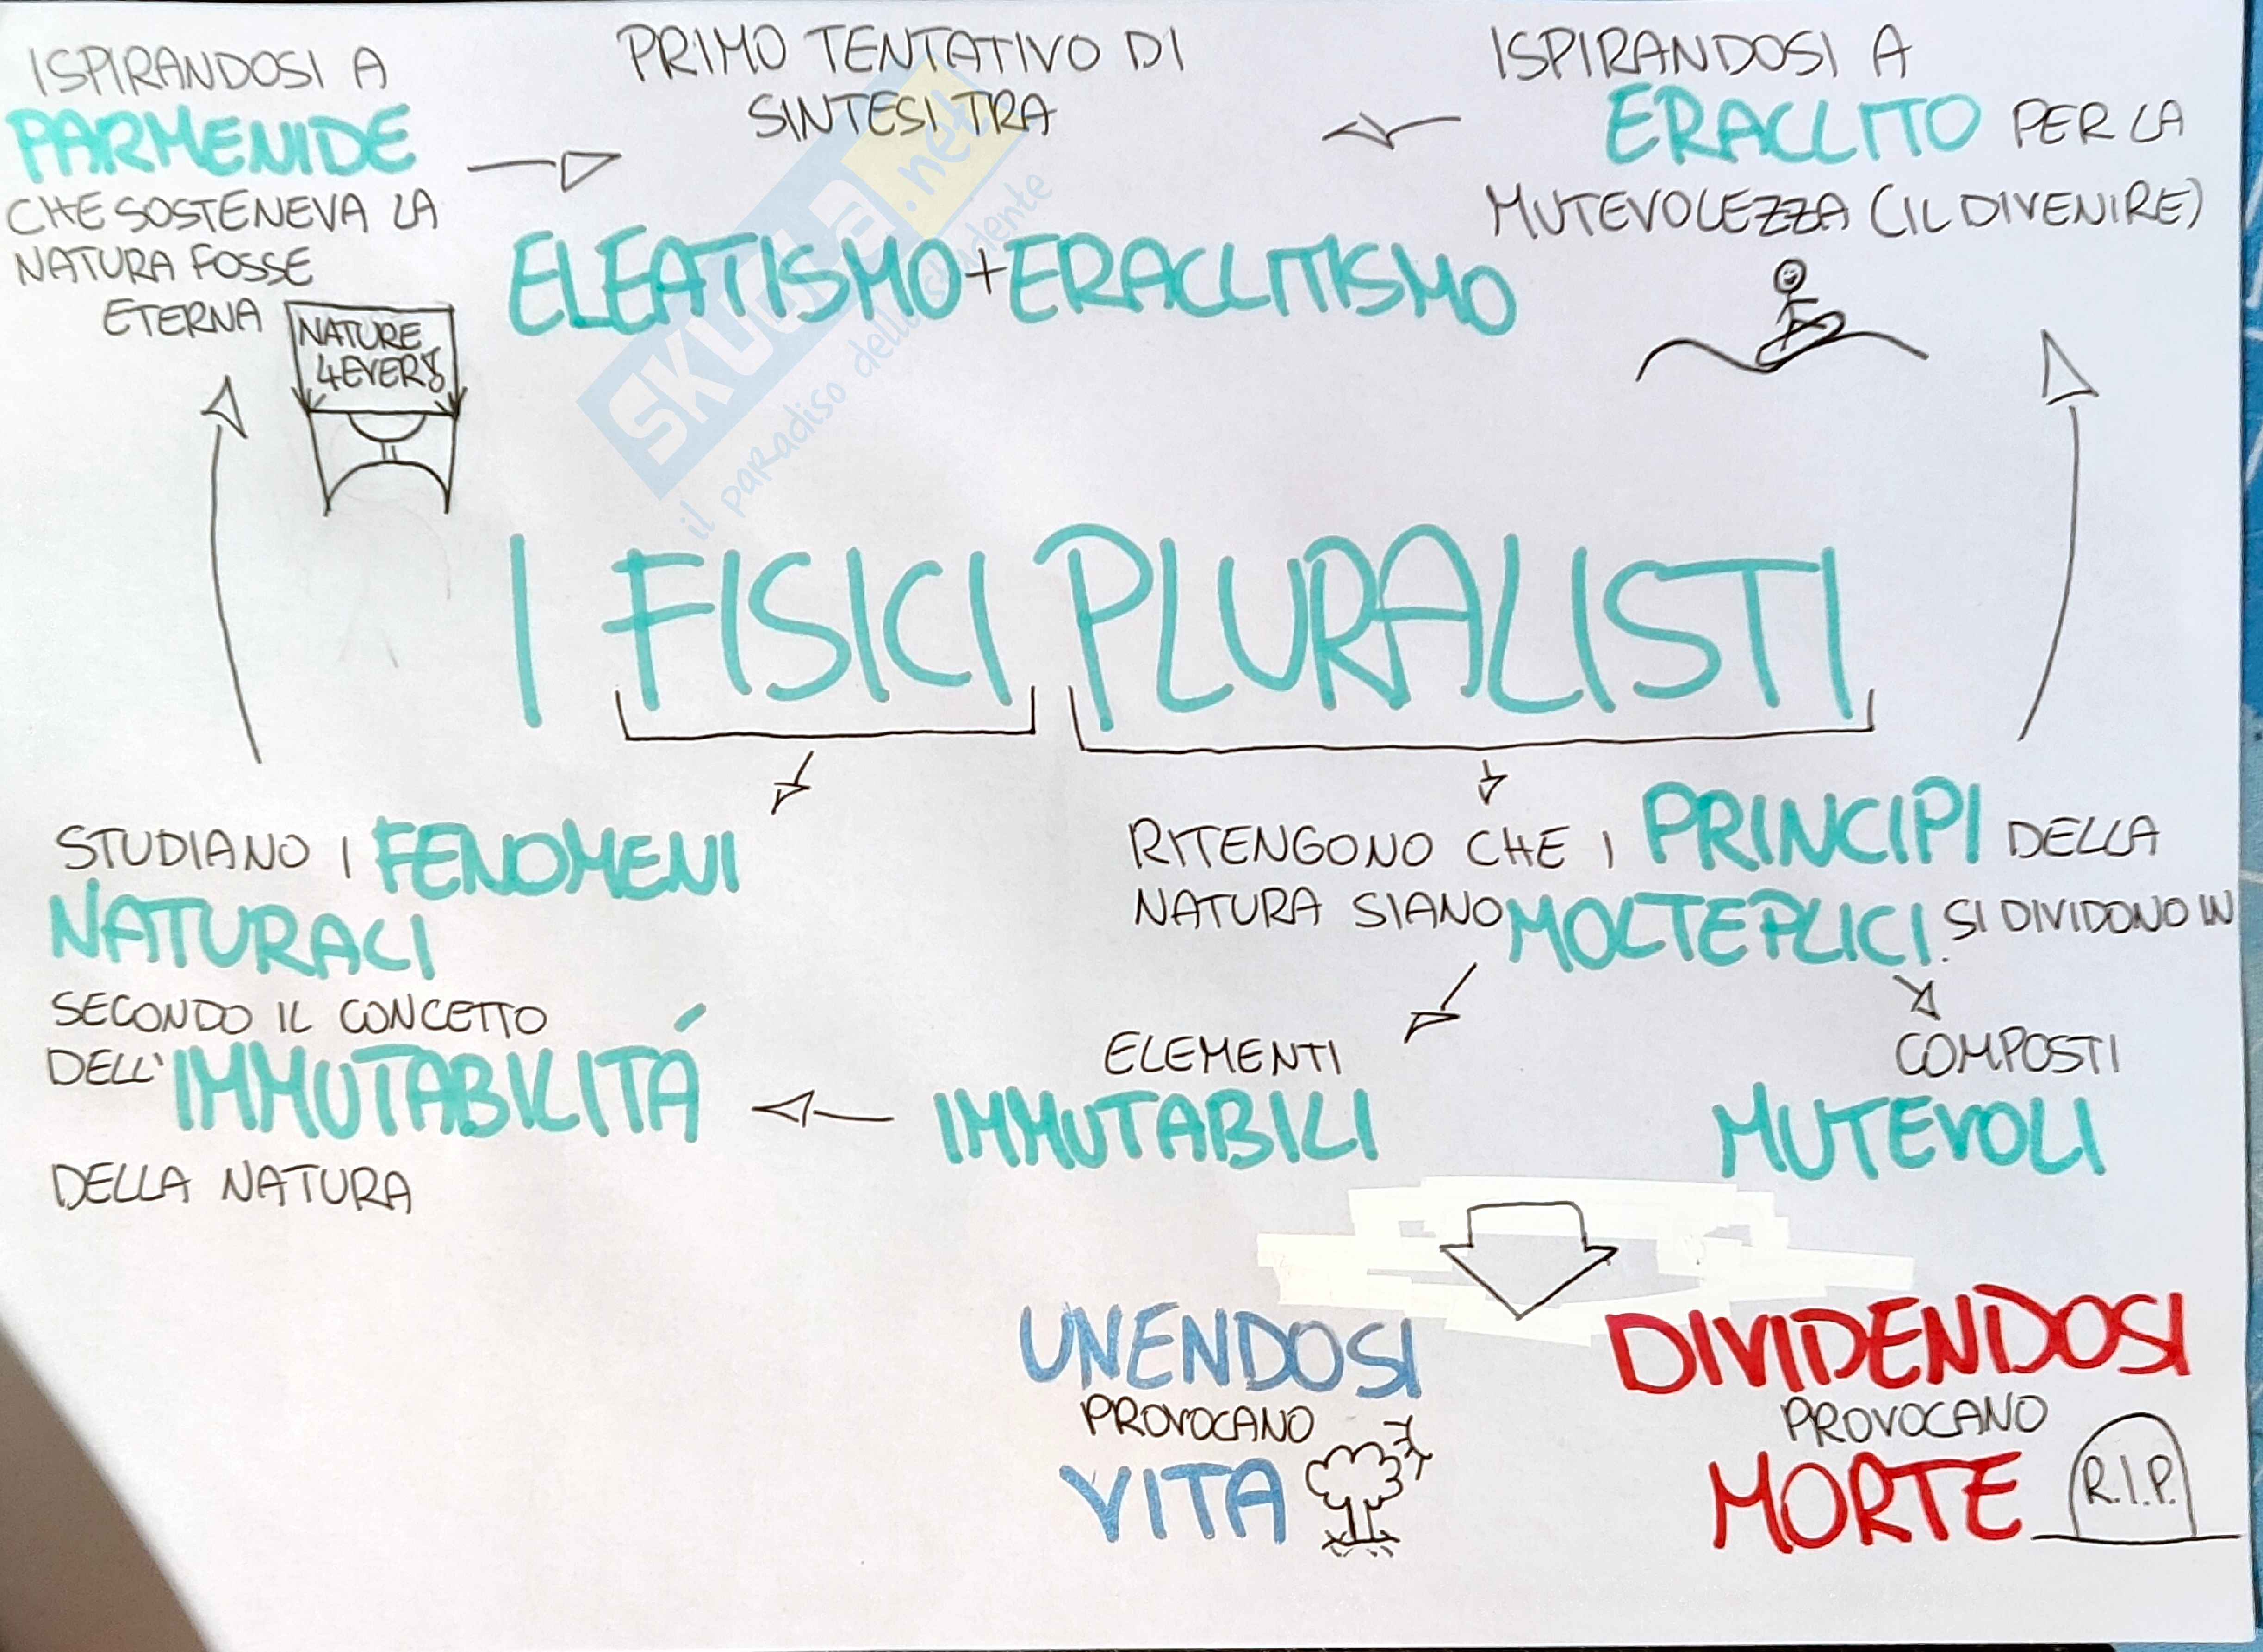 ISPIRANDOSI A
PARMENIDE
CHE SOSTENEVA LA
NATURA FOSSE
ETERNA
NATURE
4EVER
PRIMO TENTATIVO DI
SINTESI TRA
ELEATISMO + ERACLITISMO
ISPIRANDOSI A
ERACLITO PER LA
MUTEVOLEZZA (IL DIVENIRE)
SKUOLA.net
il paradiso dello studente
I FISICI PLURALISTI
STUDIANO I FENOMENI
NATURALI
SECONDO IL CONCETTO
DELL'IMMUTABILITÁ
DELLA NATURA
RITENGONO CHE I PRINCIPI DELLA
NATURA SIANO MOLTEPLICI. SI DIVIDONO IN
ELEMENTI
IMMUTABILI
COMPOSTI
MUTEVOLI
UNENDOSI
PROVOCANO
VITA
DIVIDENDOSI
PROVOCANO
MORTE
R.I.P.